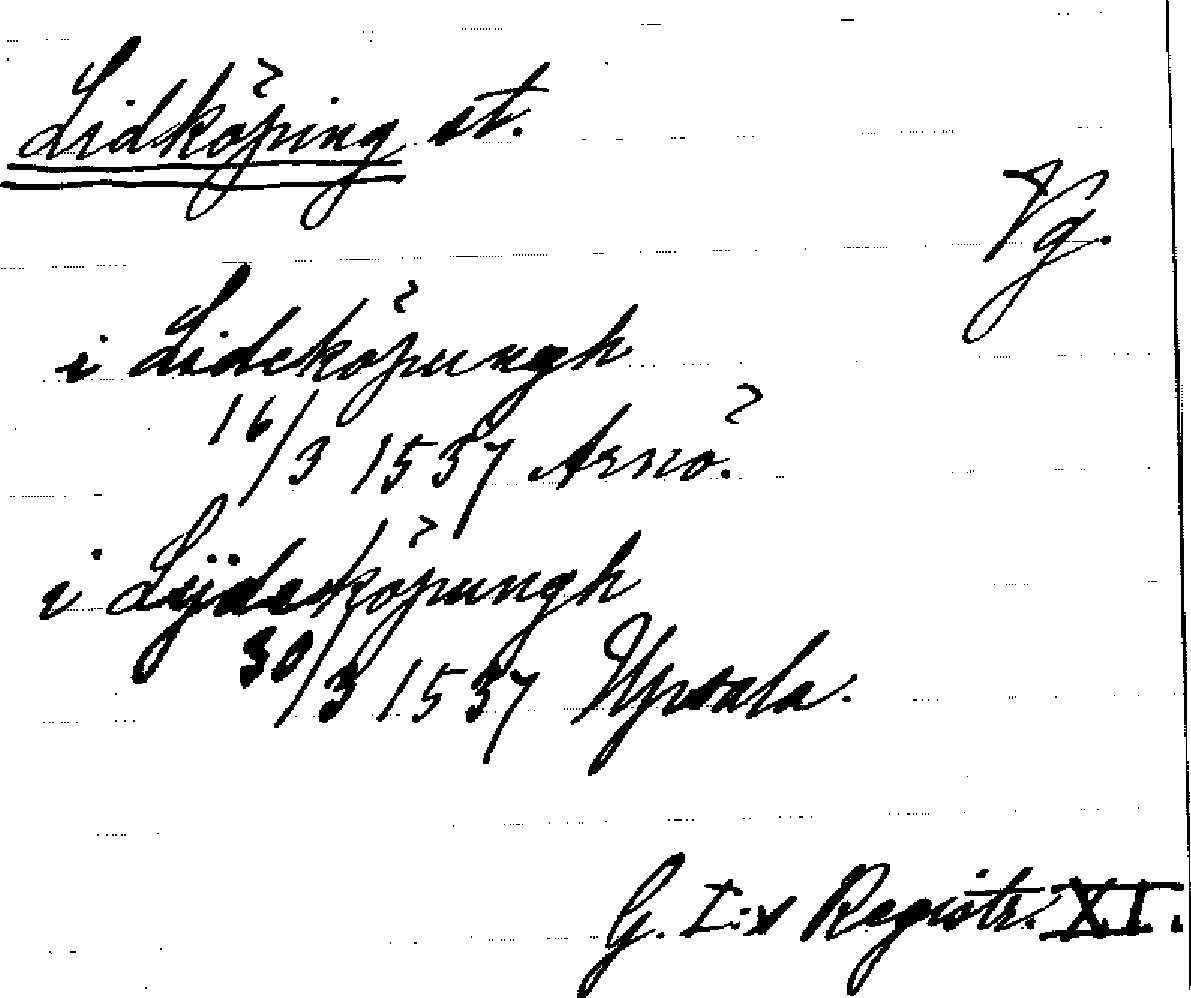 Lidköping st.
Vg.
i Lideköpungh
16/3 1537 Arnö.
i Lÿdeköpungh
30/3 1537 Upsala.
G. I:s Registr. XI.